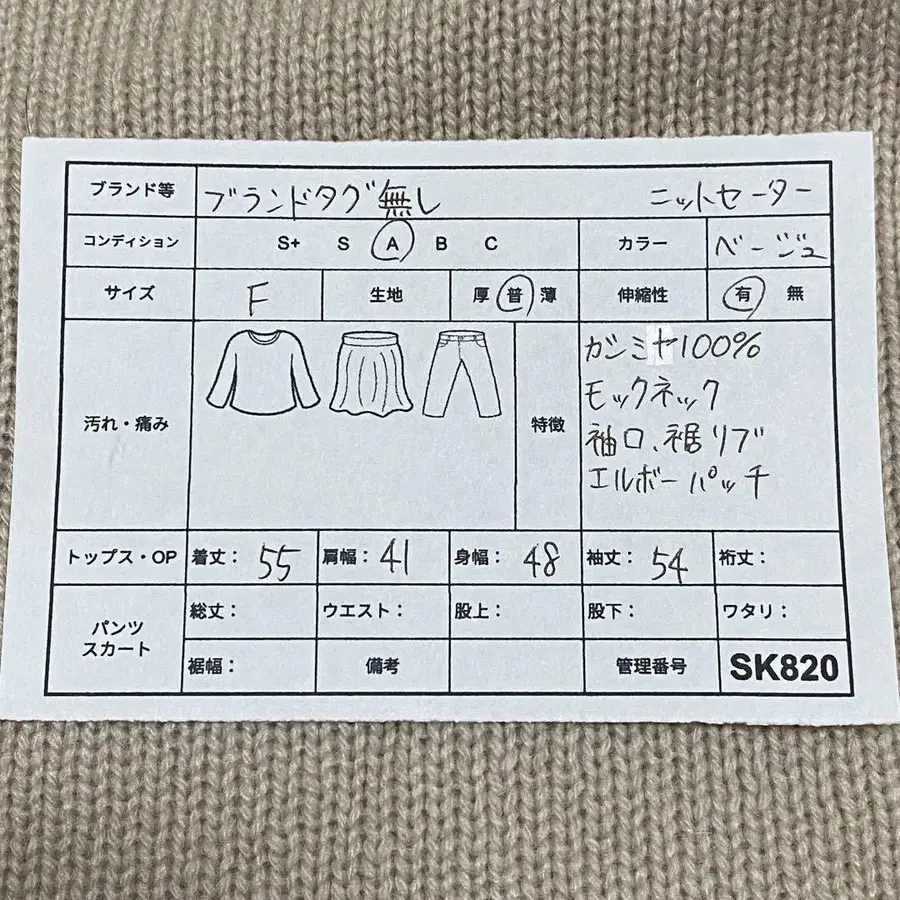 ブランド等 ブランドタグ無し ニットセーター
コンディション S+ S A B C カラー ベージュ
サイズ F 生地 厚 普 薄 伸縮性 有 無
汚れ・痛み 特徴
カシミヤ100%
モックネック
袖口、裾リブ
エルボーパッチ
トップス・OP 着丈: 55 肩幅: 41 身幅: 48 袖丈: 54 裄丈:
パンツ
スカート
総丈: ウエスト: 股上: 股下: ワタリ:
裾幅: 備考 管理番号 SK820